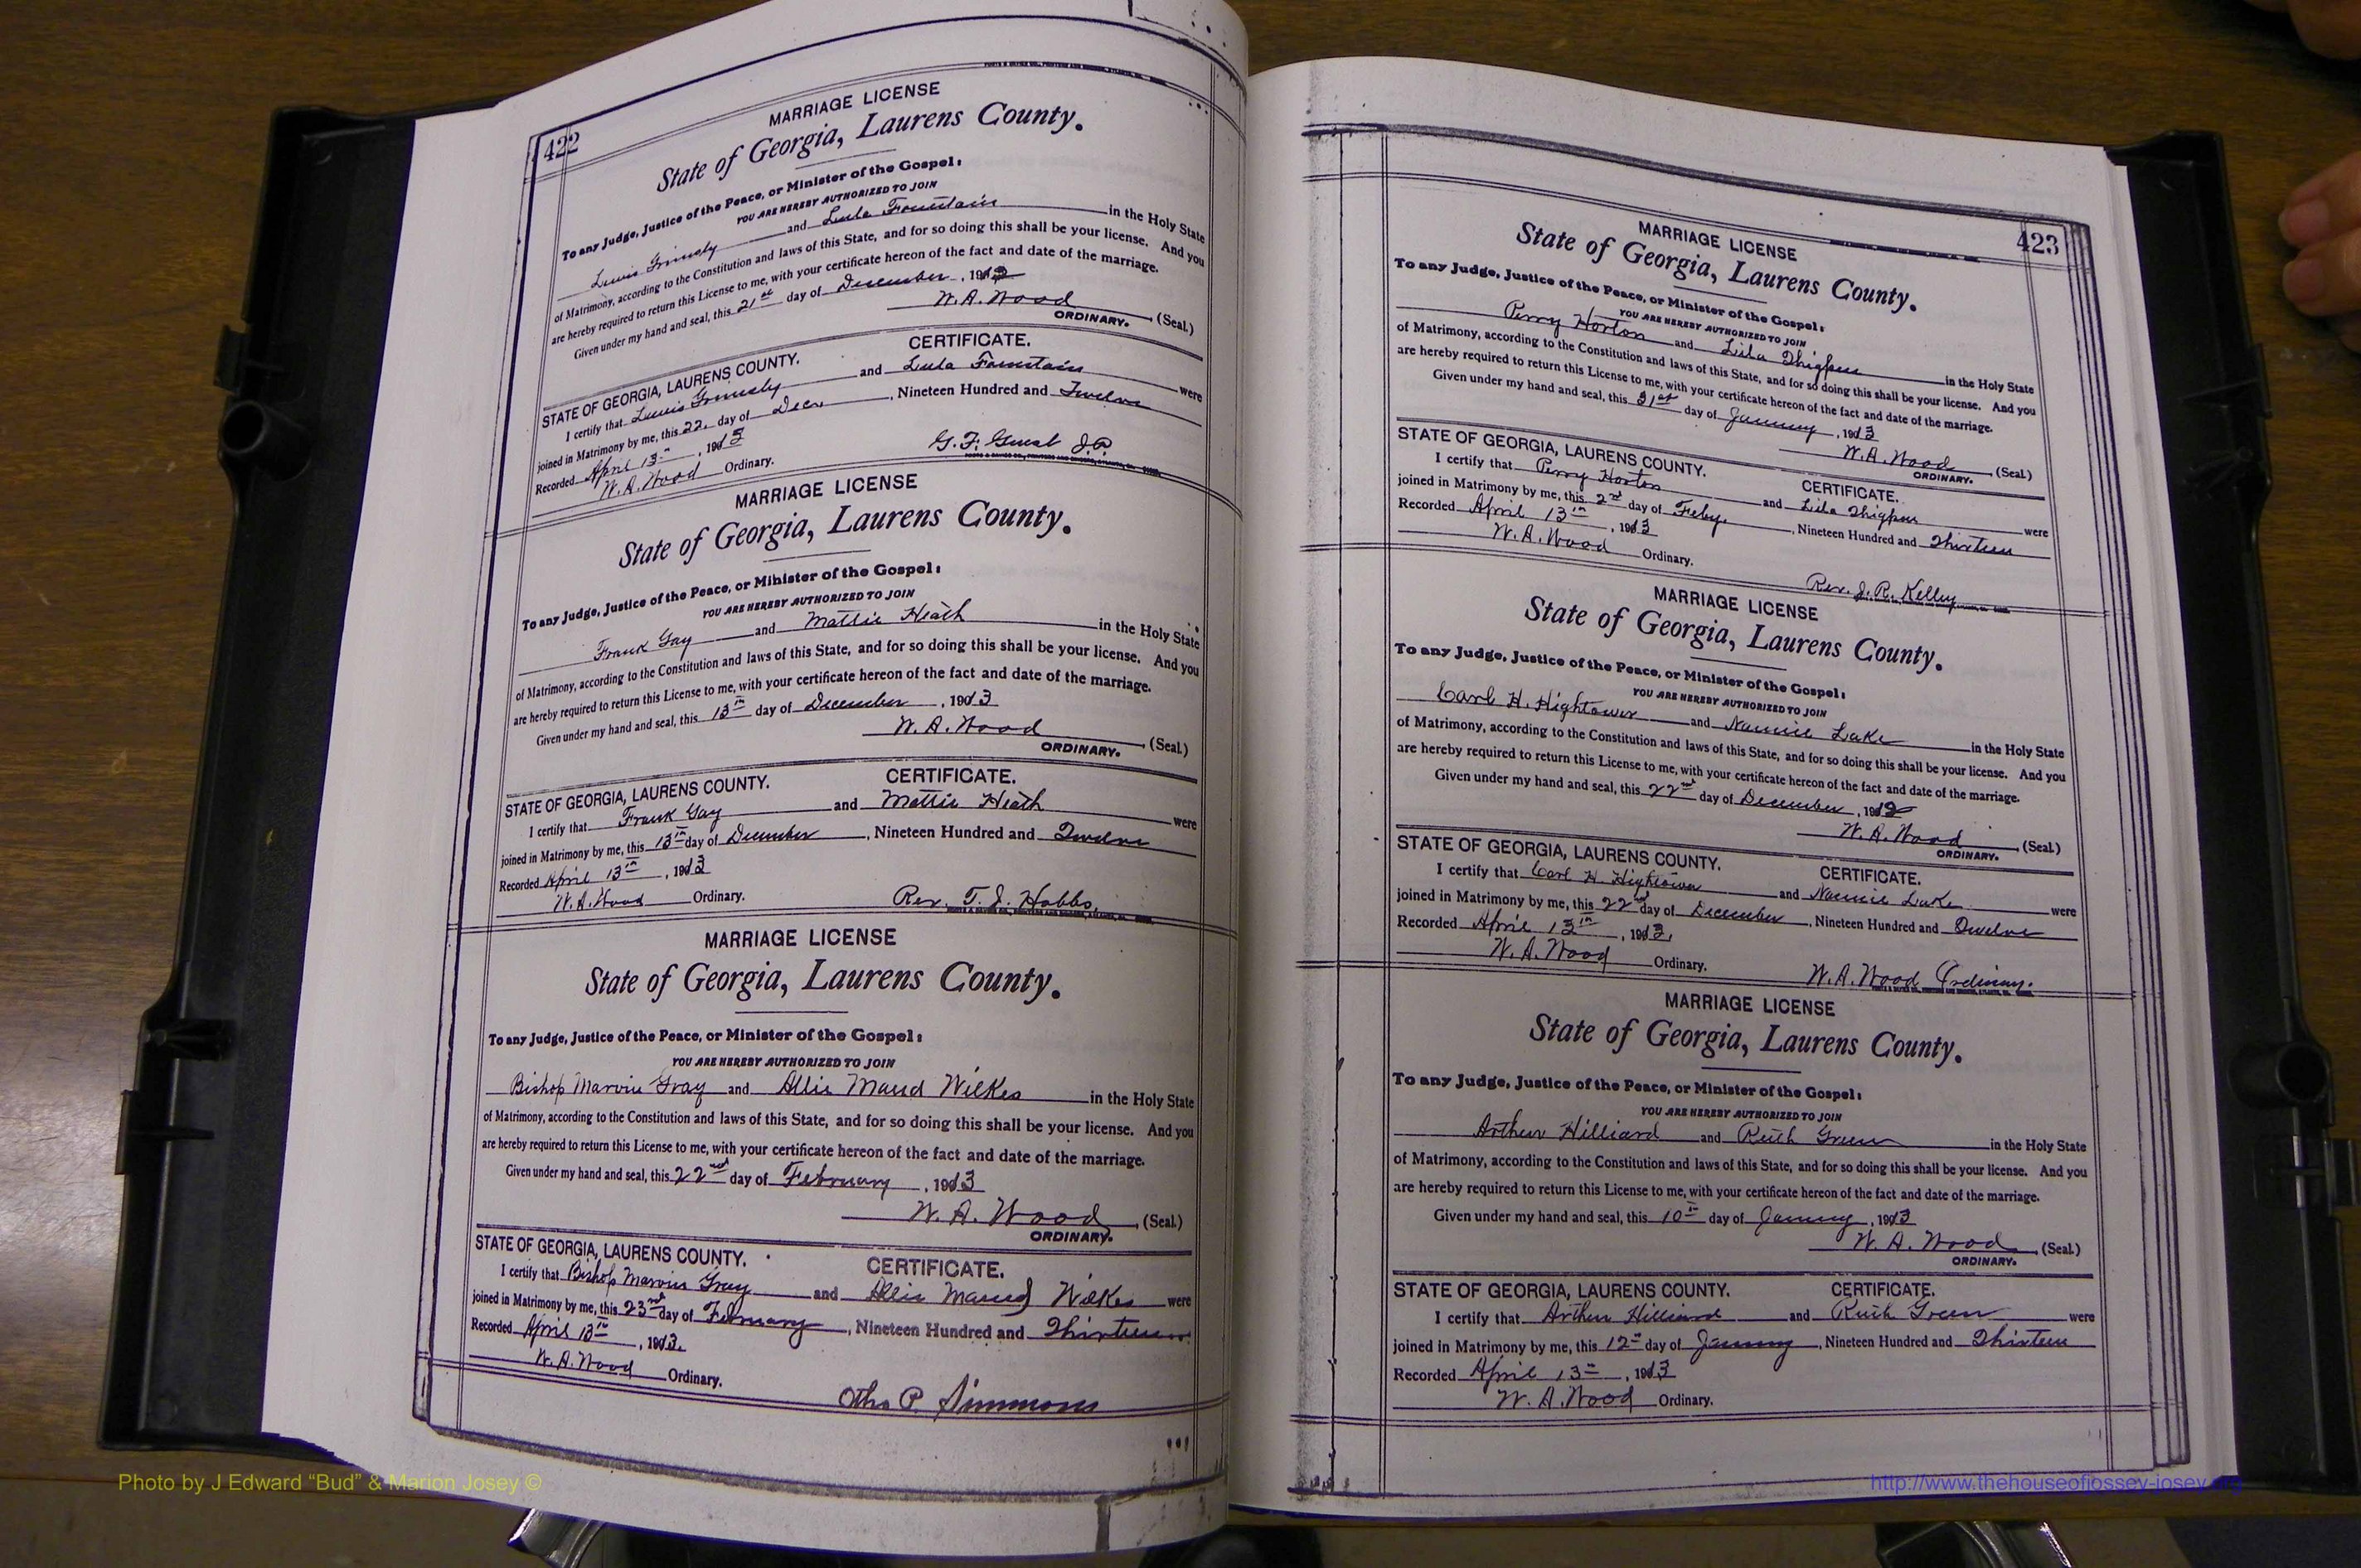 422
MARRIAGE LICENSE
State of Georgia, Laurens County.
To any Judge, Justice of the Peace, or Minister of the Gospel:
YOU ARE HEREBY AUTHORIZED TO JOIN
Lewis Grimsly and Lula Fountain in the Holy State
of Matrimony, according to the Constitution and laws of this State, and for so doing this shall be your license. And you
are hereby required to return this License to me, with your certificate hereon of the fact and date of the marriage.
Given under my hand and seal, this 21st day of December, 1912
W. A. Wood (Seal.)
ORDINARY.
STATE OF GEORGIA, LAURENS COUNTY. CERTIFICATE.
I certify that Lewis Grimsly and Lula Fountain were
joined in Matrimony by me, this 22. day of Dec., Nineteen Hundred and Twelve
Recorded April 13th, 1913
W. A. Wood Ordinary. G. F. J.P.
MARRIAGE LICENSE
State of Georgia, Laurens County.
To any Judge, Justice of the Peace, or Minister of the Gospel:
YOU ARE HEREBY AUTHORIZED TO JOIN
Frank Gay and Mattie Heath in the Holy State
of Matrimony, according to the Constitution and laws of this State, and for so doing this shall be your license. And you
are hereby required to return this License to me, with your certificate hereon of the fact and date of the marriage.
Given under my hand and seal, this 13th day of December, 1913
W. A. Wood (Seal.)
ORDINARY.
STATE OF GEORGIA, LAURENS COUNTY. CERTIFICATE.
I certify that Frank Gay and Mattie Heath were
joined in Matrimony by me, this 13th day of December, Nineteen Hundred and Twelve
Recorded April 13th, 1913
W. A. Wood Ordinary. Rev. T. J. Hobbs.
MARRIAGE LICENSE
State of Georgia, Laurens County.
To any Judge, Justice of the Peace, or Minister of the Gospel:
YOU ARE HEREBY AUTHORIZED TO JOIN
Bishop Marvin Gray and Allie Maud Wilkes in the Holy State
of Matrimony, according to the Constitution and laws of this State, and for so doing this shall be your license. And you
are hereby required to return this License to me, with your certificate hereon of the fact and date of the marriage.
Given under my hand and seal, this 22nd day of February, 1913
W. A. Wood (Seal.)
ORDINARY.
STATE OF GEORGIA, LAURENS COUNTY. CERTIFICATE.
I certify that Bishop Marvin Gray and Allie Maud Wilkes were
joined in Matrimony by me, this 23nd day of February, Nineteen Hundred and Thirteen
Recorded April 13th, 1913.
W. A. Wood Ordinary.
Otho P. Simmons
423
MARRIAGE LICENSE
State of Georgia, Laurens County.
To any Judge, Justice of the Peace, or Minister of the Gospel:
YOU ARE HEREBY AUTHORIZED TO JOIN
Perry Horton and Lila Thigpen in the Holy State
of Matrimony, according to the Constitution and laws of this State, and for so doing this shall be your license. And you
are hereby required to return this License to me, with your certificate hereon of the fact and date of the marriage.
Given under my hand and seal, this 31st day of January, 1913
W. A. Wood (Seal)
ORDINARY.
STATE OF GEORGIA, LAURENS COUNTY. CERTIFICATE.
I certify that Perry Horton and Lila Thigpen were
joined in Matrimony by me, this 2nd day of Feby., Nineteen Hundred and Thirteen
Recorded April 13th, 1913
W. A. Wood Ordinary.
Rev. J. R. Kelley
MARRIAGE LICENSE
State of Georgia, Laurens County.
To any Judge, Justice of the Peace, or Minister of the Gospel:
YOU ARE HEREBY AUTHORIZED TO JOIN
Carl H. Hightower and Nannie Lake in the Holy State
of Matrimony, according to the Constitution and laws of this State, and for so doing this shall be your license. And you
are hereby required to return this License to me, with your certificate hereon of the fact and date of the marriage.
Given under my hand and seal, this 22nd day of December, 1912
W. A. Wood (Seal)
ORDINARY.
STATE OF GEORGIA, LAURENS COUNTY. CERTIFICATE.
I certify that Carl H. Hightower and Nannie Lake were
joined in Matrimony by me, this 22nd day of December, Nineteen Hundred and Twelve
Recorded April 13th, 1913,
W. A. Wood Ordinary. W. A. Wood Ordinary.
MARRIAGE LICENSE
State of Georgia, Laurens County.
To any Judge, Justice of the Peace, or Minister of the Gospel:
YOU ARE HEREBY AUTHORIZED TO JOIN
Arthur Hilliard and Ruth Green in the Holy State
of Matrimony, according to the Constitution and laws of this State, and for so doing this shall be your license. And you
are hereby required to return this License to me, with your certificate hereon of the fact and date of the marriage.
Given under my hand and seal, this 10th day of January, 1913
W. A. Wood (Seal)
ORDINARY.
STATE OF GEORGIA, LAURENS COUNTY. CERTIFICATE.
I certify that Arthur Hilliard and Ruth Green were
joined in Matrimony by me, this 12th day of January, Nineteen Hundred and Thirteen
Recorded April 13th, 1913
W. A. Wood Ordinary.
Photo by J Edward “Bud” & Marion Josey ©
http://www.thehouseofjossey-josey.org